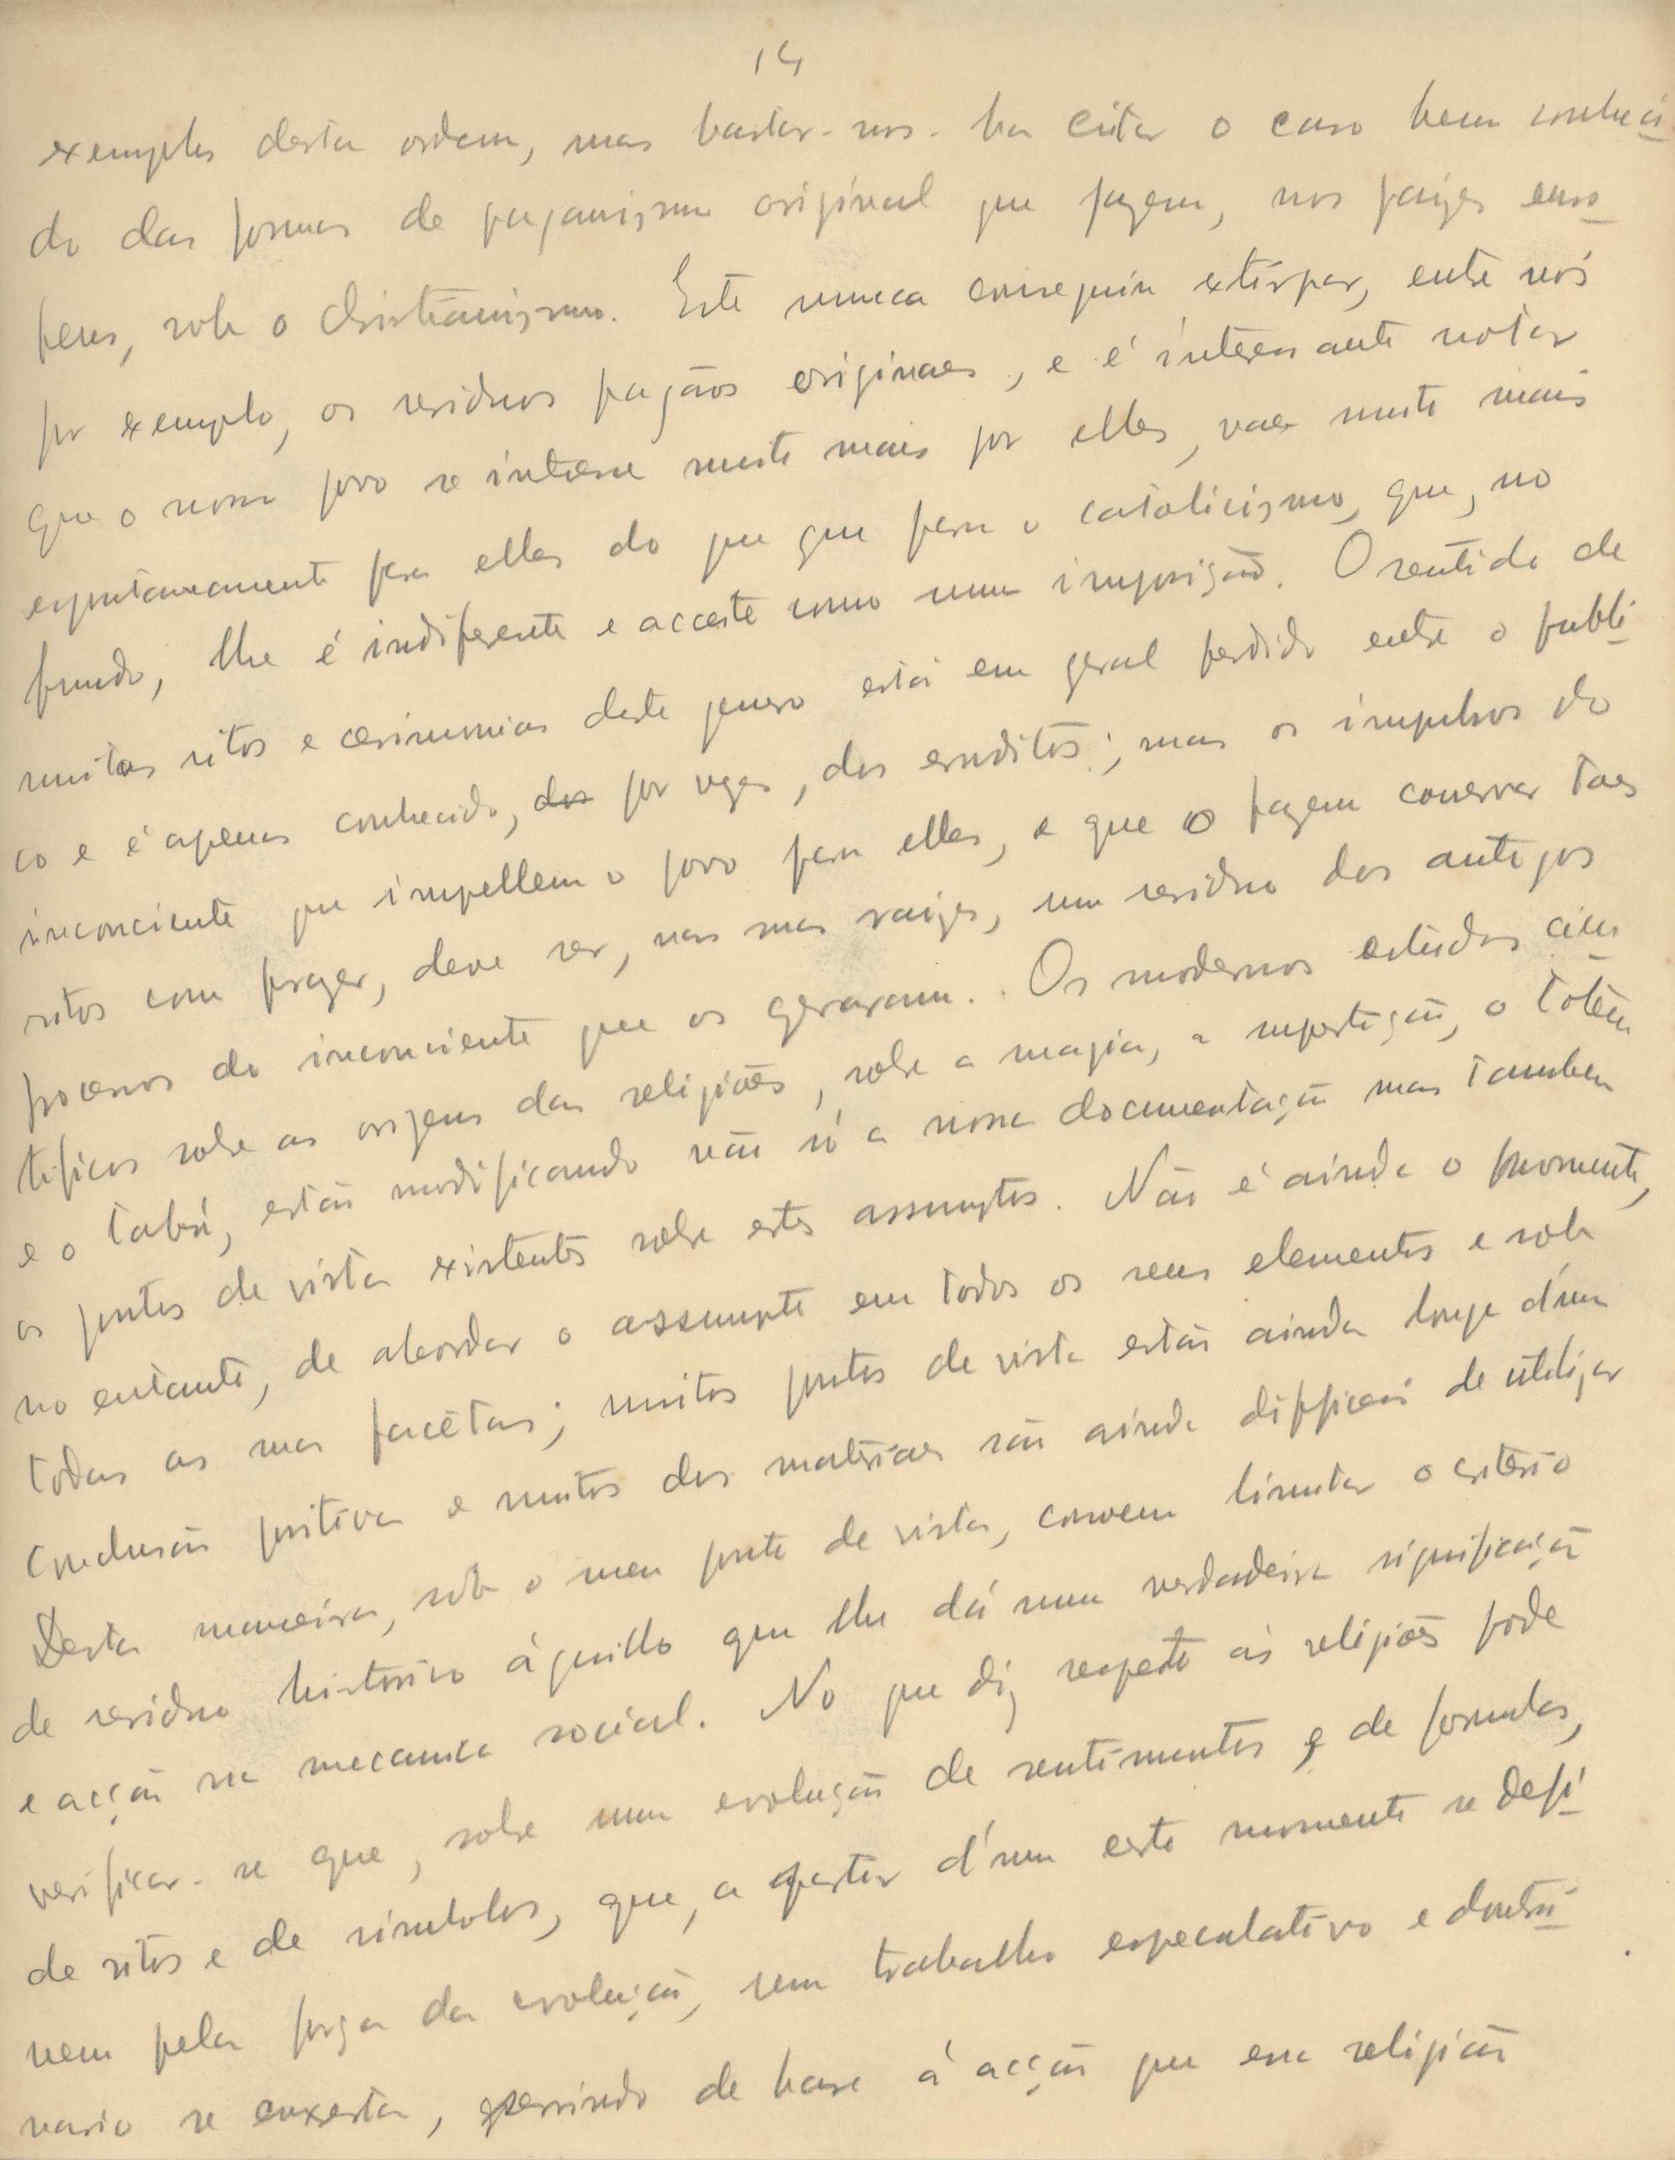 14
exemplos desta ordem, mas bastar-nos-ha citar o caso bem conheci-
do das formas de paganismo original que jazem, nos paizes euro-
peus, sob o Christianismo. Este nunca conseguiu extirpar, entre nós
por exemplo, os residuos pagãos originaes, e é interessante notar
que o nosso povo se interesse muito mais por elles, vae muito mais
espontaneamente para elles do que que para o catolicismo, que, no
fundo, lhe é indiferente e acceite como uma imposição. O sentido de
muitos ritos e cerimonias deste genero está em geral perdido entre o publi-
co e é apenas conhecido, dos por vezes, dos eruditos; mas os impulsos do
inconciente que impellem o povo para elles, e que o fazem conservar taes
ritos com prazer, deve ser, nas suas raizes, um residuo dos antigos
processos do inconciente que os geraram. Os modernos estudos cien-
tificos sobre as origens das religiões, sobre a magia, a superstição, o totem
e o tabú, estão modificando não só a nossa documentação mas tambem
os pontos de vista existentes sobre estes assumptos. Não é ainda o momento,
no entanto, de abordar o assumpto em todos os seus elementos e sob
todas as suas facêtas; muitos pontos de vista estão ainda longe d'uma
conclusão positiva e muitos dos materiaes são ainda difficeis de utilizar
Desta maneira, sob o meu ponto de vista, convem limitar o criterio
de residuo historico áquillo que lhe dá uma verdadeira significação
e acção na mecanica social. No que diz respeito ás religiões pode
verificar-se que, sobre uma evolução de sentimentos e de formulas,
de ritos e de simbolos, que, a partir d'um certo momento se defi-
nem pela força da evolução, um trabalho especulativo e doutri-
nario se enxerta, servindo de base á acção que essa religião